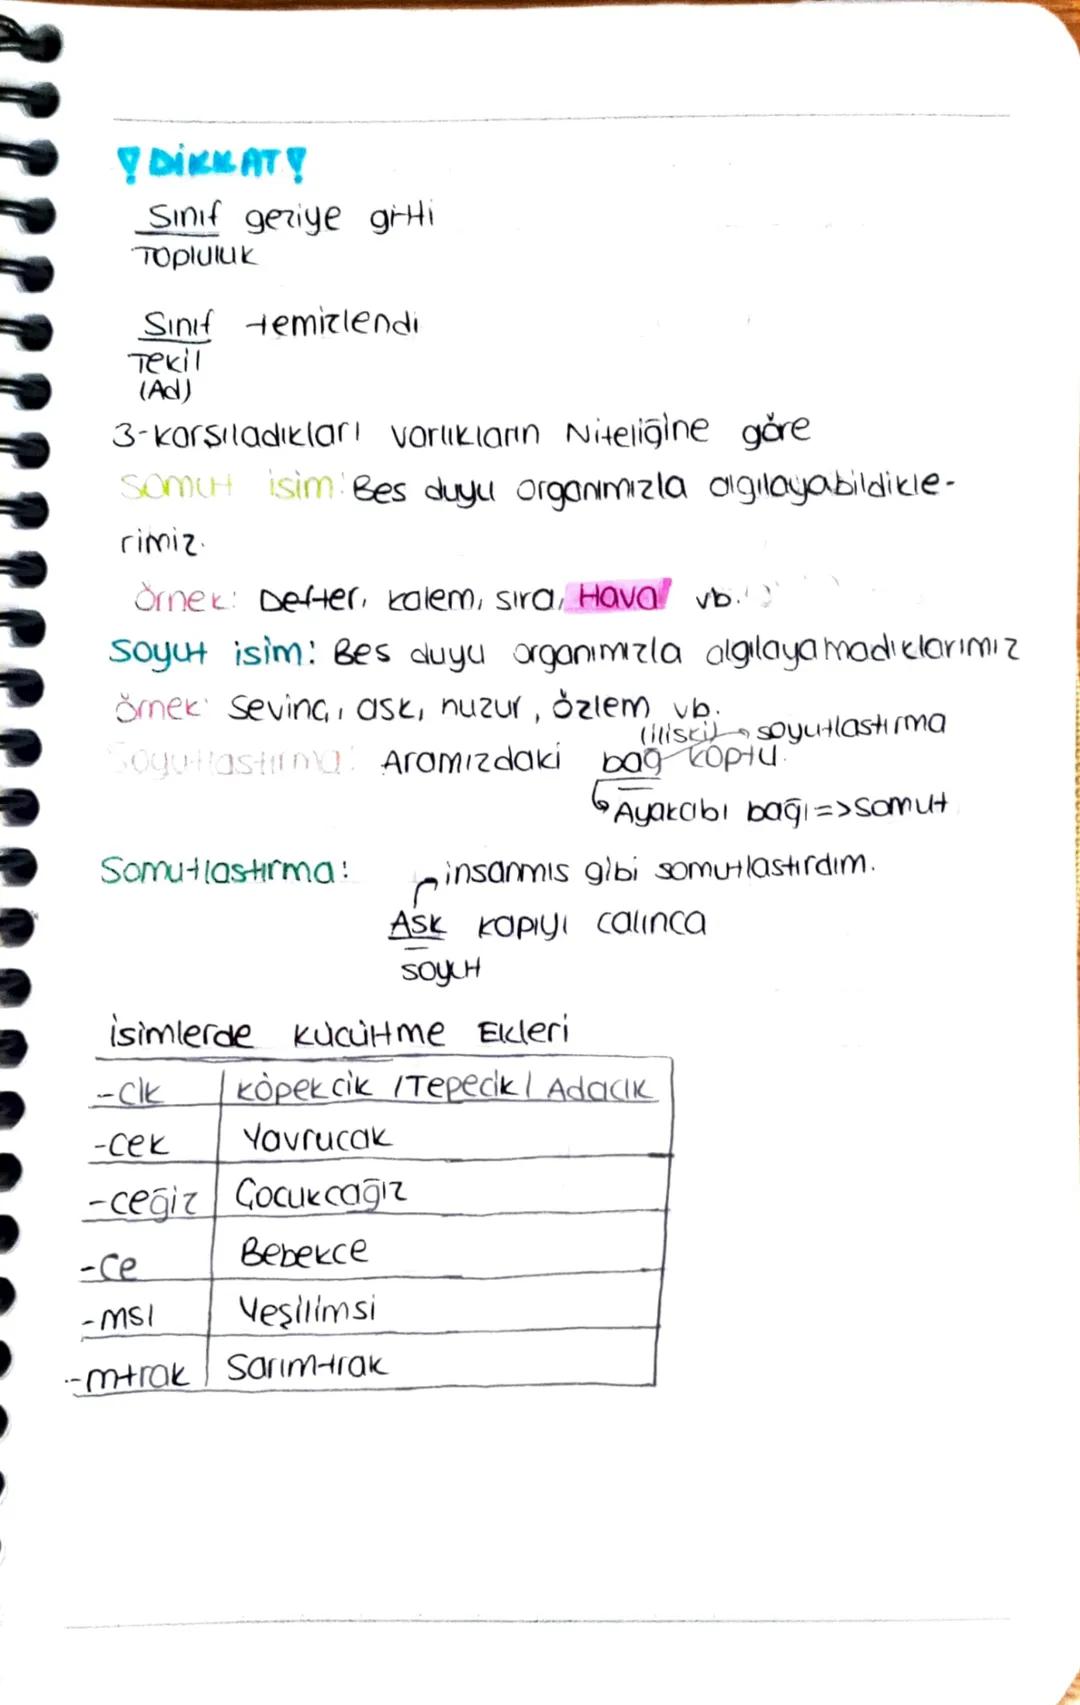 ! DİKKAT !
Sınıf geziye gitti
Topluluk
Sınıf temizlendi
Tekil
(Ad)
3-karsıladıkları varlıkların Niteliğine göre
Somut isim: Bes duyu organımızla algılayabildikle-
rimiz.
Örnek: Defter, kalem, sıra, Hava! vb.
Soyut isim: Bes duyu organımızla algılayamadıklarımız
Örnek: Sevinc, ask, huzur, özlem vb.
(iliski) soyutlastırma
Soyutlastırma: Aramızdaki bağ koptu.
Ayakcabı bağı => somut
Somutlastırma: insanmıs gibi somutlastırdım.
Ask kapıyı calınca
soyut
isimlerde kücültme Ekleri
-cik | köpekcik / Tepecik / Adacık
-cek Yavrucak
-ceğiz Çocukcağız
-ce Bebekce
-msi Yeşilimsi
-mtrak Sarımtrak